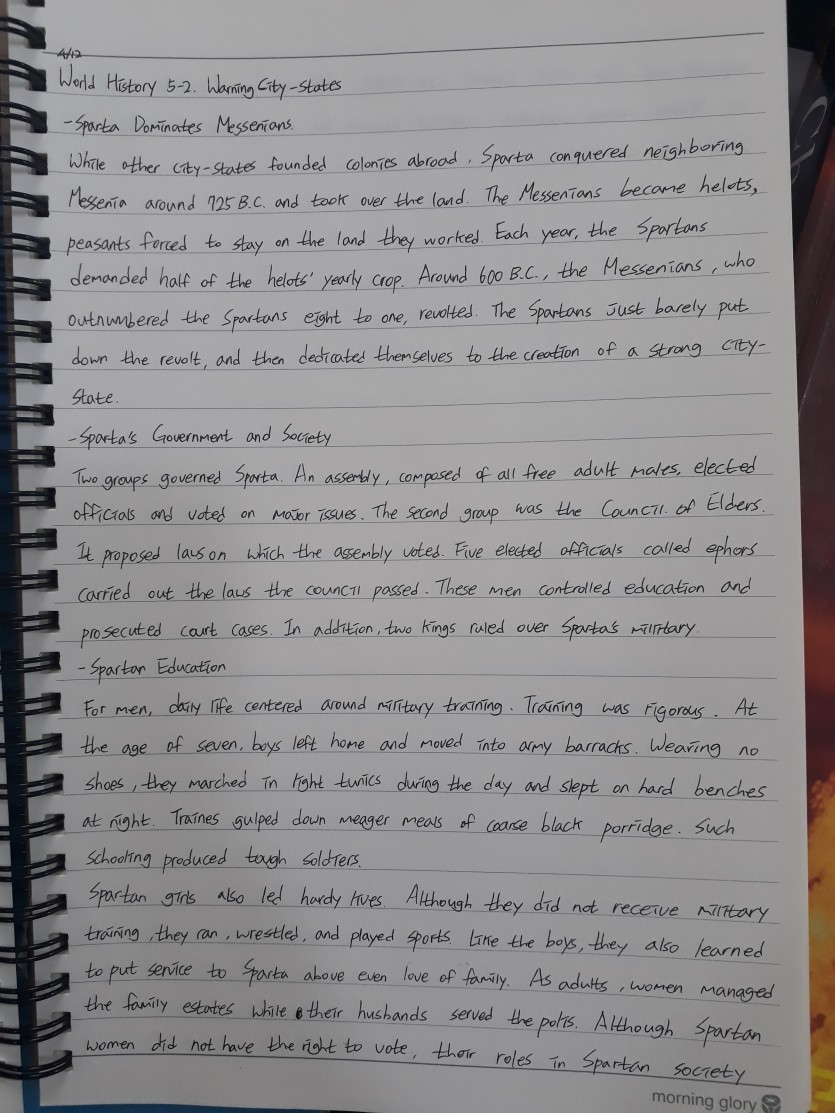 4/12
World History 5-2. Warning City-States
-Sparta Dominates Messenians.
While other city-states founded colonies abroad, Sparta conquered neighboring
Messenia around 725 B.C. and took over the land. The Messenians became helots,
peasants forced to stay on the land they worked. Each year, the Spartans
demanded half of the helots' yearly crop. Around 600 B.C., the Messenians, who
outnumbered the Spartans eight to one, revolted. The Spartans just barely put
down the revolt, and then dedicated themselves to the creation of a strong city-
state.
-Sparta's Government and Society
Two groups governed Sparta. An assembly, composed of all free adult males, elected
officials and voted on major issues. The second group was the Council of Elders.
It proposed laws on which the assembly voted. Five elected officials called ephors
carried out the laws the council passed. These men controlled education and
prosecuted court cases. In addition, two kings ruled over Sparta's military
-Spartan Education
For men, daily life centered around military training. Training was rigorous. At
the age of seven, boys left home and moved into army barracks. Wearing no
shoes, they marched in light tunics during the day and slept on hard benches
at night. Traines gulped down meager meals of coarse black porridge. Such
schooling produced tough soldiers.
Spartan girls also led hardy lives. Although they did not receive military
training, they ran, wrestled, and played sports. Like the boys, they also learned
to put service to Sparta above even love of family. As adults, women managed
the family estates while their husbands served the polis. Although Spartan
women did not have the right to vote, their roles in Spartan society
morning glory